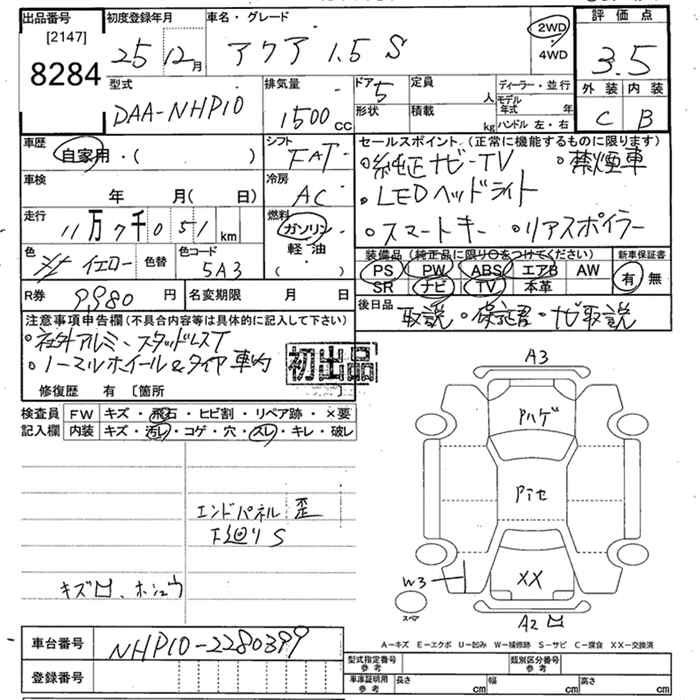 出品番号 初度登録年月 車名・グレード 評価点
[2147]
8284 25 12月 アクア 1.5 S 2WD 4WD 3.5
型式 排気量 ドア 定員 ディーラー・並行 外装 内装
DAA-NHP10 1500 CC 5 人 モデル年式 年 C B
形状 積載 kg ハンドル 左・右
車歴 シフト セールスポイント (正常に機能するものに限ります)
自家用・( ) FAT ・純正ナビ・TV ・禁煙車
車検 冷房 ・LEDヘッドライト
年 月( 日) AC ・スマートキー ・リアスポイラー
走行 燃料
11万7千051 km ガソリン
軽油
( )
色 色替 色コード 装備品 (純正品に限り○をつけてください) 新車保証書
イエロー 5A3 PS PW ABS エアB AW 有 無
SR ナビ TV 本革
R券 9980 円 名変期限 月 日 後日品
取説・保証書・ナビ取説
注意事項申告欄(不具合内容等は具体的に記入して下さい)
・社外アルミ、スタッドレスT
・ノーマルホイール&タイヤ車内
初出品
修復歴 有 [箇所
検査員 FW キズ・飛石・ヒビ割・リペア跡・×要
記入欄 内装 キズ・汚レ・コゲ・穴・スレ・キレ・破レ
A3
Pハゲ
エンドパネル 歪
下廻り S
Pイセ
キズ凹、ホシュウ
W3
XX
スペア
A2凹
A-キズ E-エクボ U-凹み W-補修跡 S-サビ C-腐食 XX-交換済
車台番号 NHP10-2280399
登録番号
型式指定番号 参考 類別区分番号 参考
車庫証明用 参考 長さ cm 幅 cm 高さ cm